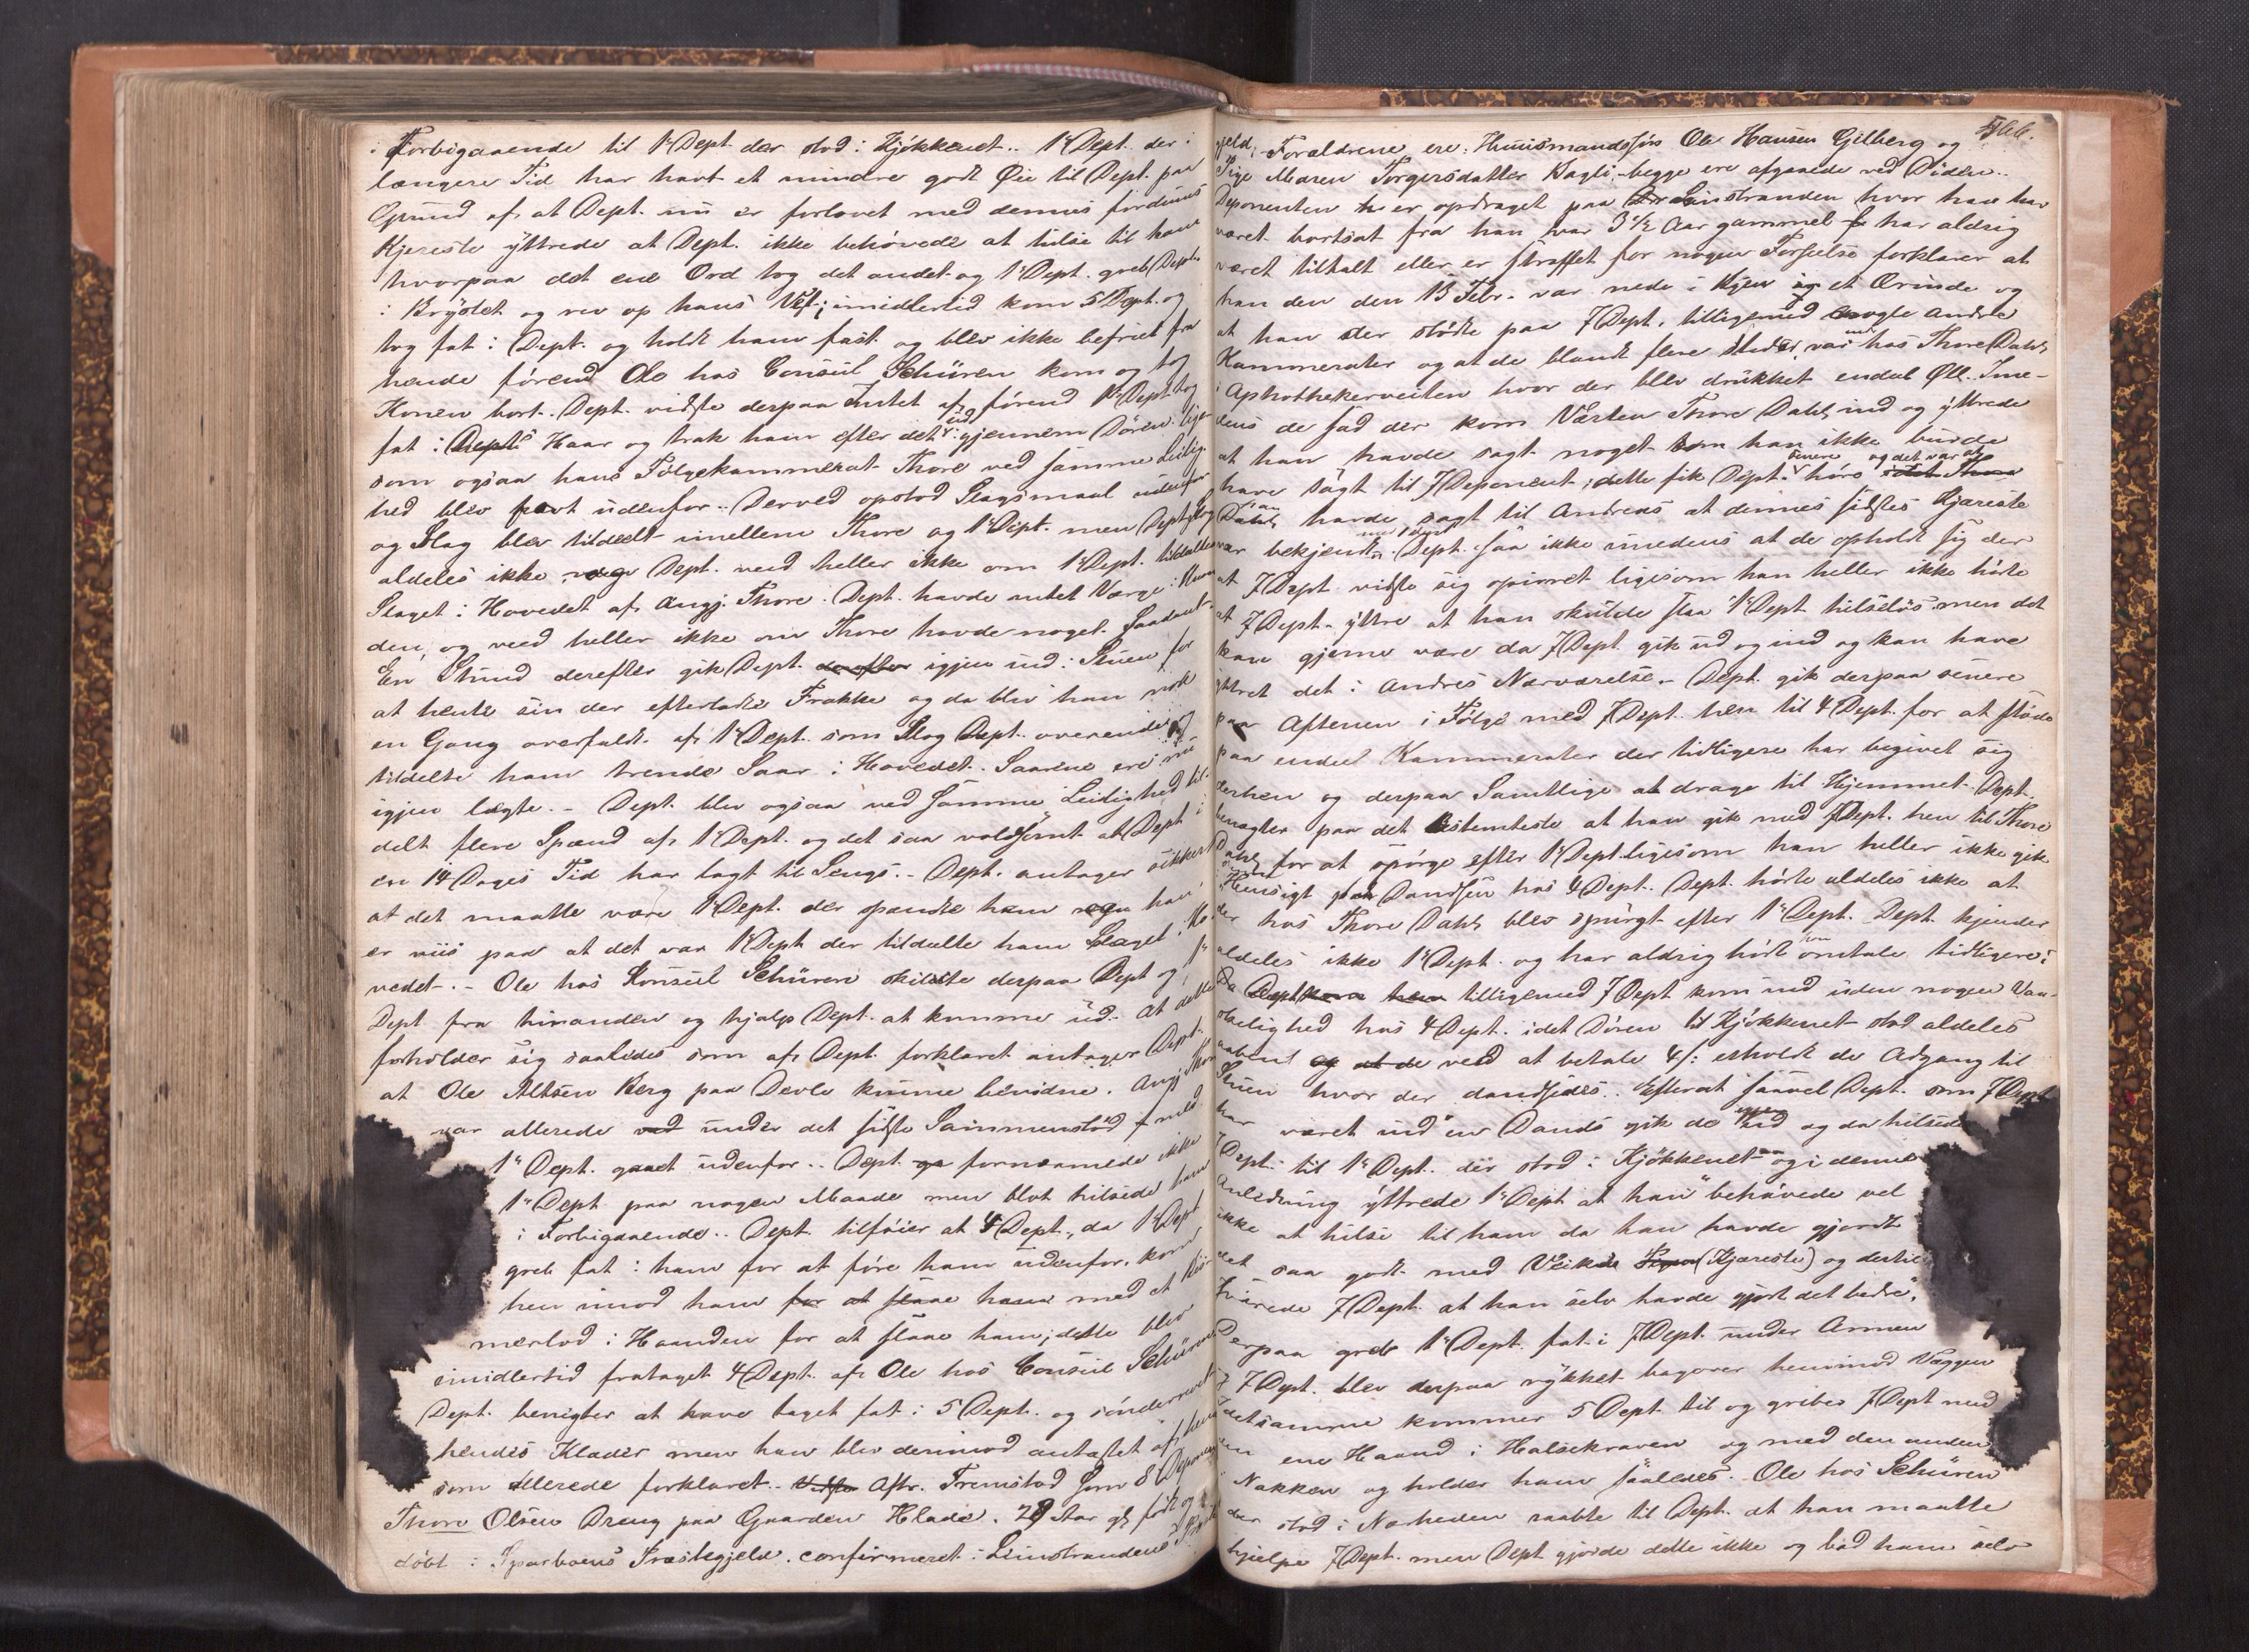 i Forbigaaende til 1ste Dept. der stod i Kjøkkenet. 1ste Dept. der i
længere Tid har havt et mindre godt Øie til Dept. paa
Grund af at Dept. nu er forlovet med dennes fordums
Kjereste yttrede at Dept. ikke behøvede at hilse til ham
hvorpaa det ene Ord tog det andet og 1ste Dept. greb Depts
i Brystet og rev op hans Vest; imidlertid kom 5 Dept. og
tog fat i Dept. og holdt ham fast og blev ikke befriet fra
hende førend Ole hos Consul Schüren kom og tog
Konen bort. Dept. vidste derpaa Intet af førend 1ste Dept. tog
fat i Depts Haar og trak ham efter det ud gjennem Døren lige
som ogsaa hans Følgekammerat Thore ved samme Leilig-
hed blev ført udenfor. Derved opstod Slagsmaal udenfor
og Slag blev tildeelt imellem Thore og 1ste Dept. men Dept. slog
aldeles ikke, Dept. veed heller ikke om 1ste Dept. tildeltes
Slaget i Hovedet af Angj. Thore. Dept. havde intet Værge i Haan
den, og veed heller ikke om Thore havde noget Saadant.
En Stund derefter gik Dept. derefter igjen ind i Stuen for
at hente sin der efterladte Frakke og da blev han nok
en Gang overfaldt af 1ste Dept. som slog Dept. overende og
tildelte ham trende Saar i Hovedet. Saarene ere nu
igjen lægte. - Dept. blev ogsaa ved samme Leilighed til-
delt flere Spænd af 1ste Dept. og det saa voldsomt at Dept. i
en 14 Dages Tid har lagt til Sengs. - Dept. antager sikkert
at det maatte være 1ste Dept. der spændte ham han
er viis paa at det var 1ste Dept. der tildelte ham Slaget i Ho-
vedet. - Ole hos Konsul Schüren skildte derpaa Dept. og 1ste
Dept. fra hinanden og hjalp Dept. at komme ud. At dette
forholder sig saaledes som af Dept. forklaret antager Dept.
at Ole Altsen Berg paa Devle kunne bevidne. Angj. Thore
var allerede ved under det sidste Sammenstød med
1ste Dept. gaaet udenfor. Dept. fornærmede ikke
1ste Dept. paa nogen Maade men blot hilsede ham
i Forbigaaende. Dept. tilføier at 4 Dept., da 1ste Dept.
greb fat i ham for at føre ham udenfor, kom
hen imod ham for at slaae ham med et
mærlod i Haanden for at slaae ham; dette blev
imidlertid frataget 4 Dept. af Ole hos Consul Schüren
Dept. benægter at have taget fat i 5 Dept. og sønderrevet
hendes Klæder men han blev derimod antastet af hende
som allerede forklaret. Aftr. Fremstod som 8 Deponent
Thore Olsen Dreng paa Gaarden Hlade. 29 Aar gl. født og
døbt i Sparboens Præstegjeld. confirmeret i Leinstrandens Præste
566.
gjeld; Forældrene ere: Huusmandssøn Ole Hansen Gilberg og
Pige Maren Torgersdatter Bagli, begge ere afgaaede ved Døden.
Deponenten er opdraget paa Leinstranden hvor han har
været bortsat fra han var 3 1/2 Aar gammel har aldrig
været tiltalt eller er straffet for nogen Forseelse forklarer at
han den den 13 Febr. var nede i Byen i et Ærinde og
at han der stødte paa 7 Dept. tilligemed nogle andre
Kammerater og at de blandt flere Steder var inde hos Thore Dahl
i Aphothekerveiten hvor der blev drukket endeel Øll. Ime-
dens de sad der kom Værten Thore Dahl ind og yttrede
at han havde sagt noget som han ikke burde
have sagt til 7 Deponent; dette fik Dept. senere høre og det var at
Dahl havde sagt til Andreas at dennes sidstes Kjæreste
var bekjendt med 1ste Dept. Dept. saa ikke imedens at de opholdt sig der
at 7 Dept. vidste sig opirret ligesom han heller ikke hørte
at 7 Dept. yttre at han skulde slaa 1ste Dept. helseløs men det
kan gjerne være da 7 Dept. gik ud og ind og kan have
yttret det i Andres Nærværelse. - Dept. gik derpaa senere
paa Aftenen i Følge med 7 Dept. hen til 4 Dept. for at støde
paa endeel Kammerater der tidligere har begivet sig
derhen og derpaa Samtlige at drage til Hjemmet. Dept.
benægter paa det bestemteste at han gik med 7 Dept. hen til Thore
Dahl for at spørge efter 1ste Dept. ligesom han heller ikke gik
i Hensigt paa Dandsen hos 4 Dept. Dept. hørte aldeles ikke at
der hos Thore Dahl blev spurgt efter 1ste Dept. Dept. kjender
aldeles ikke 1ste Dept. og har aldrig hørt ham omtale tidligere.
Da Dept. tilligemed 7 Dept. kom ind uden nogen Van-
skelighed hos 4 Dept. idet Døren til Kjøkkenet stod aldeles
aabent og at de ved at betale 4 s: erholdt de Adgang til
Stuen hvor der dandsedes. Efterat saavel Dept. som 7 Dept.
har været ind en Dands gik de igjen ud og da hilsede
7 Dept. til 1ste Dept. der stod i Kjøkkenet og i denne
Anledning yttrede 1ste Dept. at han "behøvede vel
ikke at hilse til ham da han havde gjordt
det saa godt med Veikda (Kjæreste) og dertil
svarede 7 Dept. at han selv havde gjort det bedre",
Derpaa greb 1ste Dept. fat i 7 Dept. under Armen
og 7 Dept. blev derpaa rykket bagover henimod Væggen
I detsamme kommer 5 Dept. til og gribes 7 Dept. med
den ene Haand i Halsekraven og med den anden
i Nakken og holder ham saaledes. Ole hos Schüren
der stod i Nærheden raabte til Dept. at han maatte
hjelpe 7 Dept. men Dept. gjorde dette ikke og bad ham selv